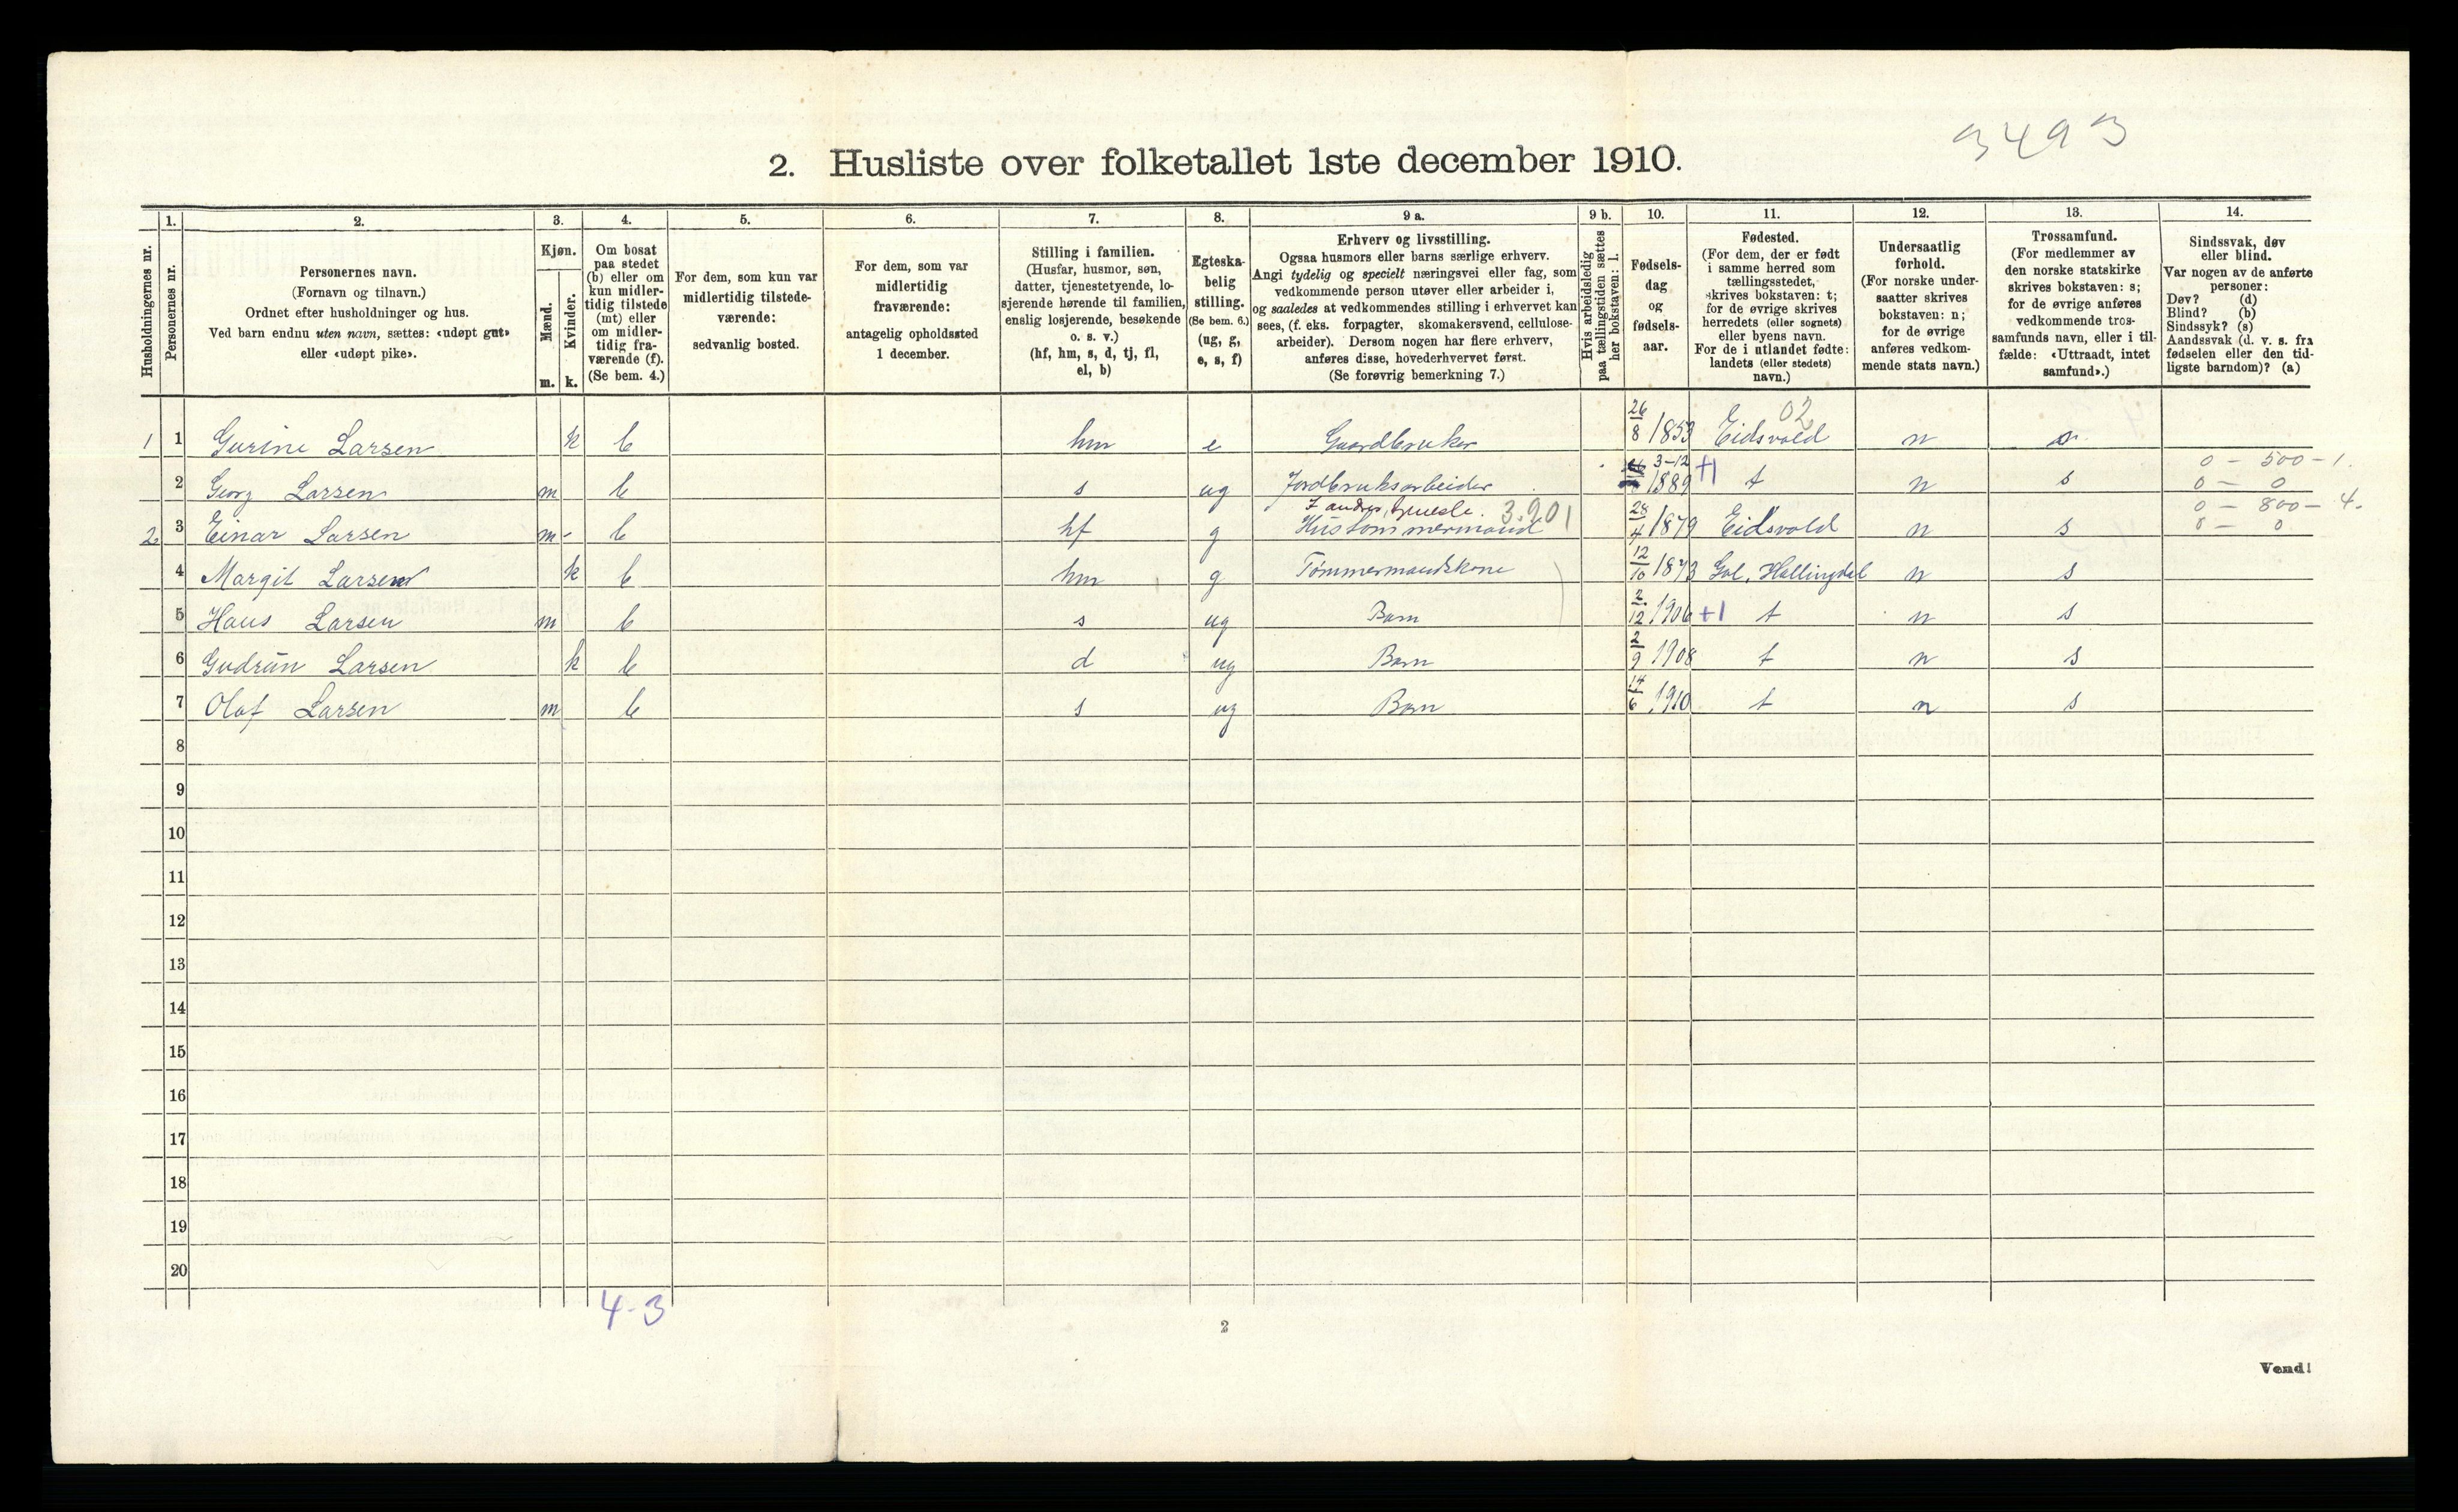 3493
2. Husliste over folketallet 1ste december 1910.
1. 2. 3. 4. 5. 6. 7. 8. 9 a. 9 b. 10. 11. 12. 13. 14.
Husholdningernes nr.
Personernes nr.
Personernes navn.
(Fornavn og tilnavn.)
Ordnet efter husholdninger og hus.
Ved barn endnu uten navn, sættes: «udøpt gut»
eller «udøpt pike».
Kjøn.
Mænd.
Kvinder.
m. k.
Om bosat
paa stedet
(b) eller om
kun midler-
tidig tilstede
(mt) eller
om midler-
tidig fra-
værende (f).
(Se bem. 4.)
For dem, som kun var
midlertidig tilstede-
værende:
sedvanlig bosted.
For dem, som var
midlertidig
fraværende:
antagelig opholdssted
1 december.
Stilling i familien.
(Husfar, husmor, søn,
datter, tjenestetyende, lo-
sjerende hørende til familien,
enslig losjerende, besøkende
o. s. v.)
(hf, hm, s, d, tj, fl,
el, b)
Egteska-
belig
stilling.
(Se bem. 6.)
(ug, g,
e, s, f)
Erhverv og livsstilling.
Ogsaa husmors eller barns særlige erhverv.
Angi tydelig og specielt næringsvei eller fag, som
vedkommende person utøver eller arbeider i,
og saaledes at vedkommendes stilling i erhvervet kan
sees, (f. eks. forpagter, skomakersvend, cellulose-
arbeider). Dersom nogen har flere erhverv,
anføres disse, hovederhvervet først.
(Se forøvrig bemerkning 7.)
Hvis arbeidsledig
paa tællingstiden sættes
her bokstaven: l.
Fødsels-
dag
og
fødsels-
aar.
Fødested.
(For dem, der er født
i samme herred som
tællingsstedet,
skrives bokstaven: t;
for de øvrige skrives
herredets (eller sognets)
eller byens navn.
For de i utlandet fødte:
landets (eller stedets)
navn.)
Undersaatlig
forhold.
(For norske under-
saatter skrives
bokstaven: n;
for de øvrige
anføres vedkom-
mende stats navn.)
Trossamfund.
(For medlemmer av
den norske statskirke
skrives bokstaven: s;
for de øvrige anføres
vedkommende tros-
samfunds navn, eller i til-
fælde: «Uttraadt, intet
samfund».)
Sindssvak, døv
eller blind.
Var nogen av de anførte
personer:
Døv? (d)
Blind? (b)
Sindssyk? (s)
Aandssvak (d. v. s. fra
fødselen eller den tid-
ligste barndom)? (a)
02
1 1 Gurine Larsen k b hm e Gaardbruker 26/8 1853 Eidsvold n
3-12 +1 0 - 500 - 1.
2 Georg Larsen m b s ug Jordbruksarbeider 1889 t n s 0 - 0
3.901 0 - 800 - 4.
2 3 Einar Larsen m b hf g Hustømmermand 28/4 1879 Eidsvold n s 0 - 0
4 Margit Larsen k b hm g Tømmermandskone 12/10 1873 Gol, Hallingdal n s
5 Hans Larsen m b s ug Barn 2/12 1906 +1 t n s
6 Gudrun Larsen k b d ug Barn 2/9 1908 t n s
7 Olaf Larsen m b s ug Barn 14/6 1910 t n s
8
9
10
11
12
13
14
15
16
17
18
19
20
4-3
2
Vend!